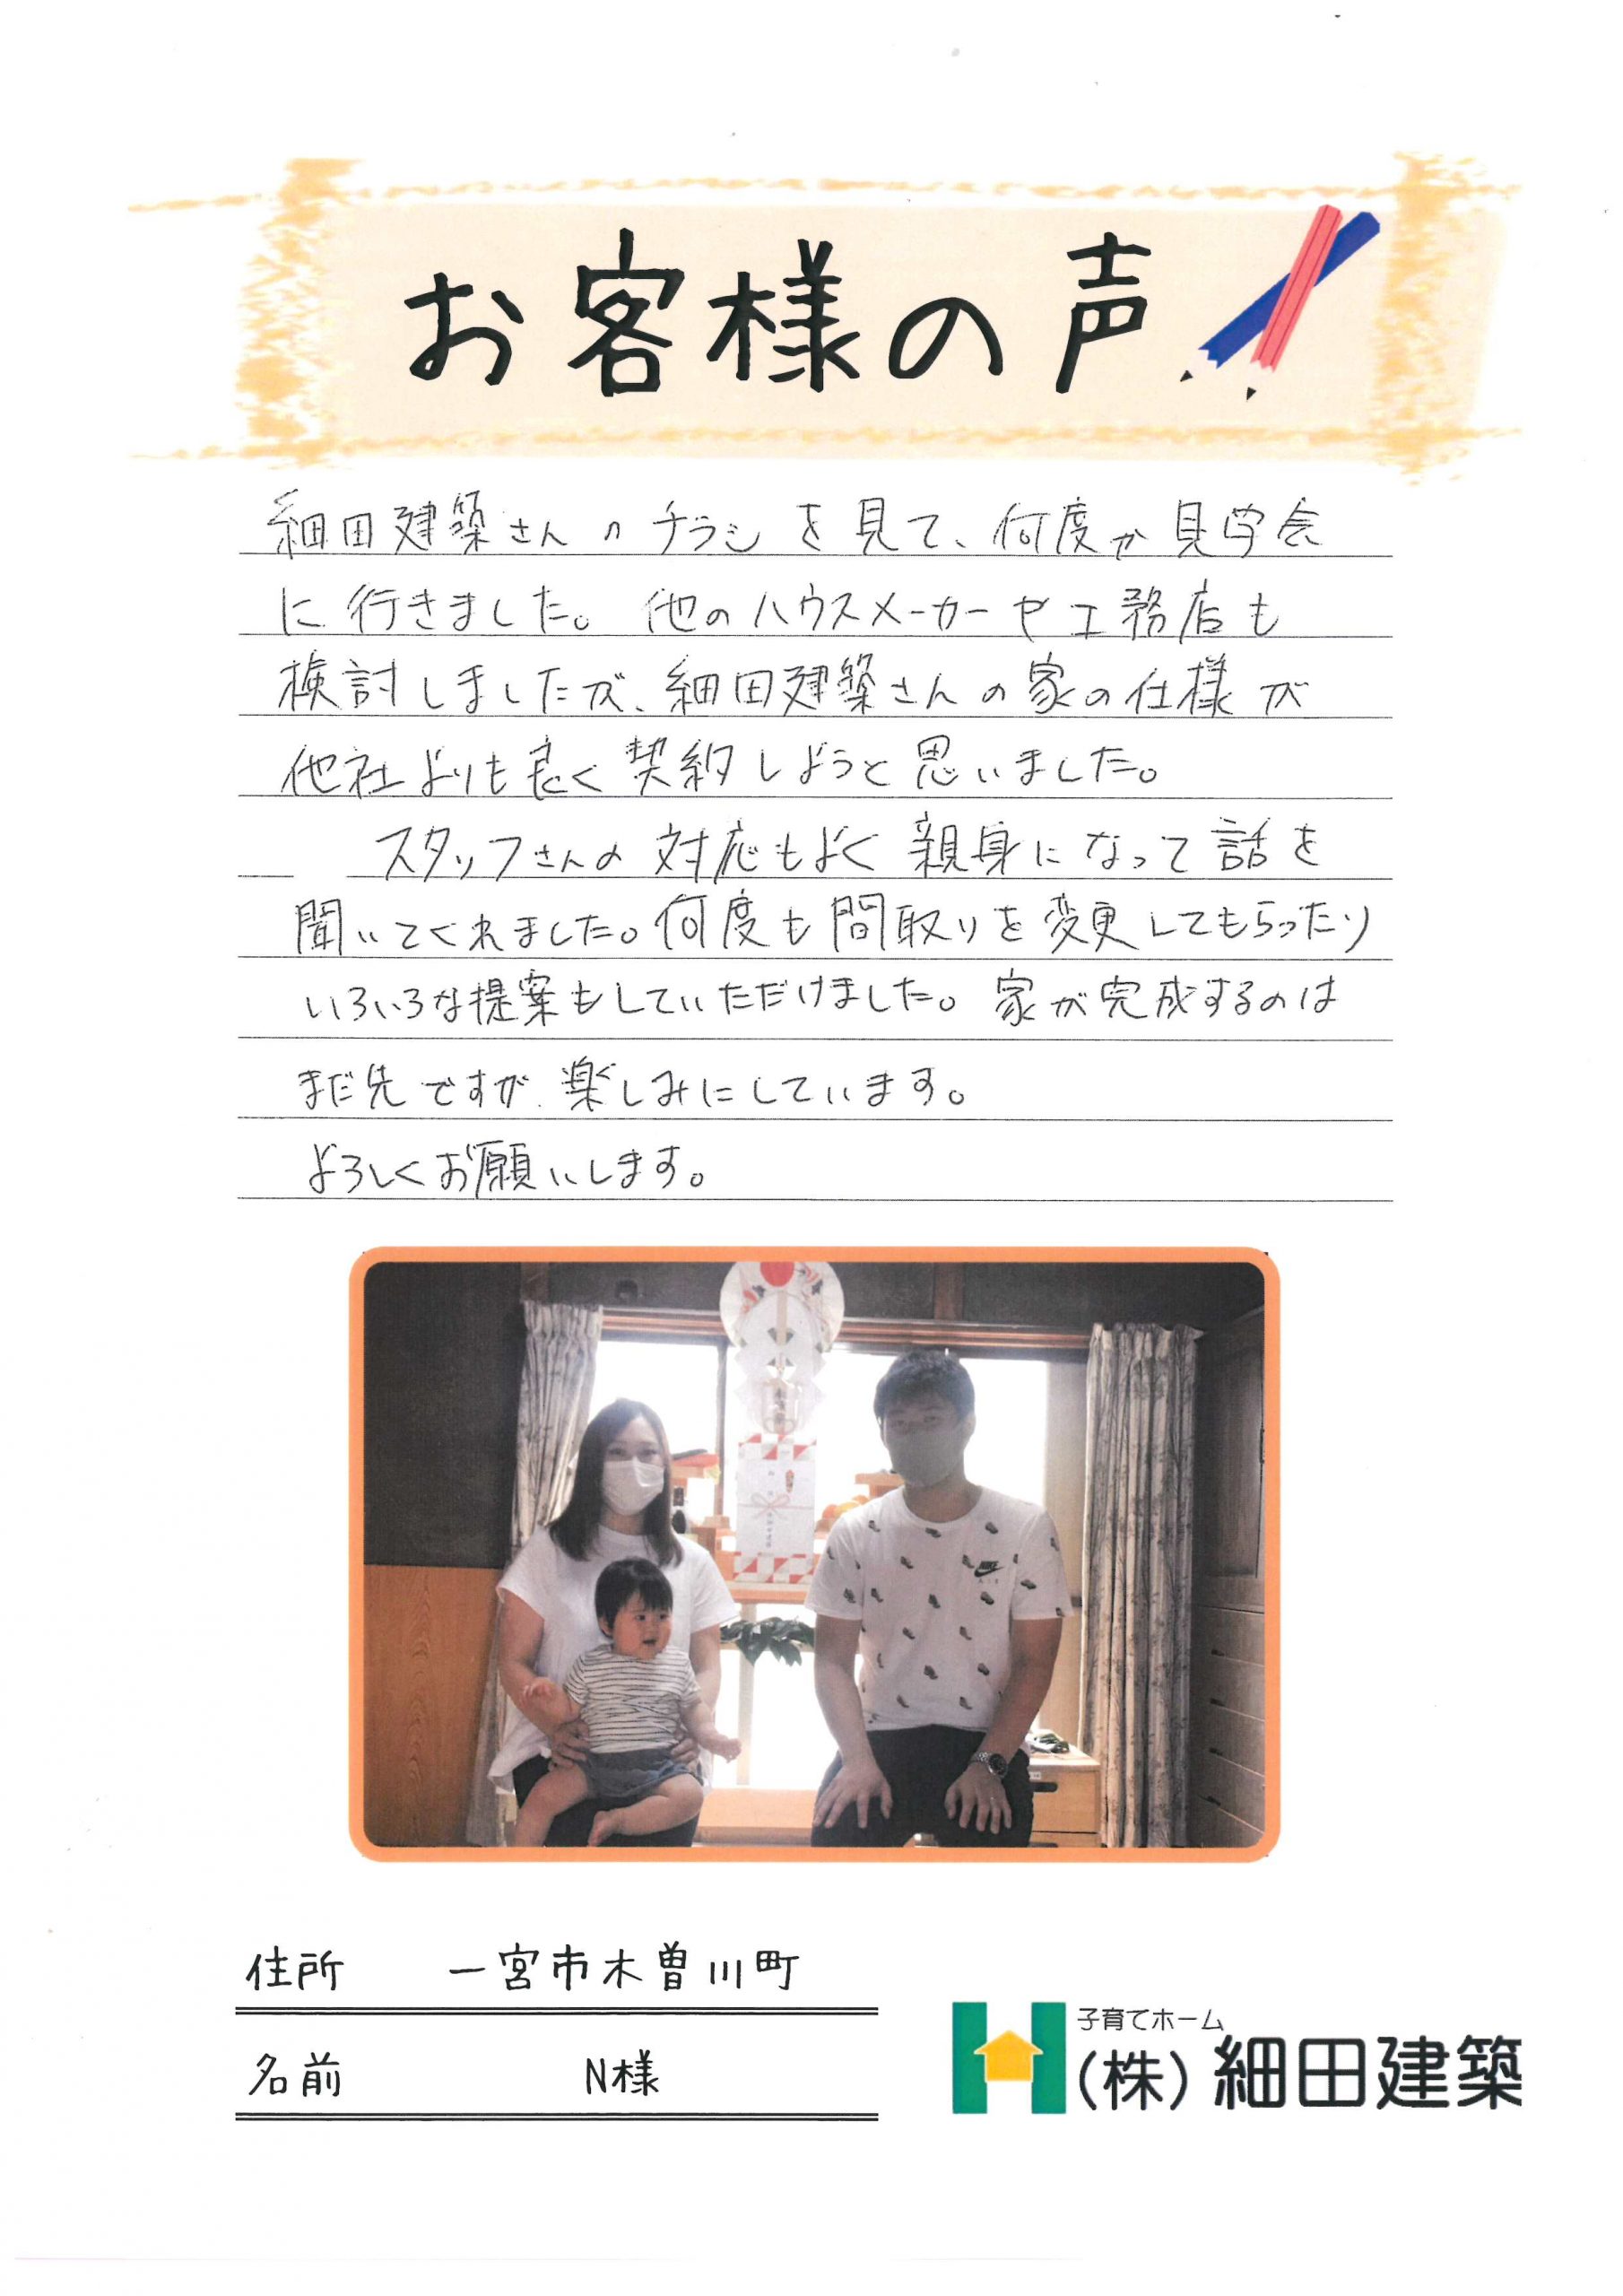 お客様の声
細田建築さんのチラシを見て、何度か見学会
に行きました。他のハウスメーカーや工務店も
検討しましたが、細田建築さんの家の仕様が
他社よりも良く契約しようと思いました。
スタッフさんの対応もよく親身になって話を
聞いてくれました。何度も間取りを変更してもらったり
いろいろな提案もしていただけました。家が完成するのは
まだ先ですが、楽しみにしています。
よろしくお願いします。
NIKE
AIR
住所 一宮市木曽川町
名前 N様
子育てホーム
(株)細田建築